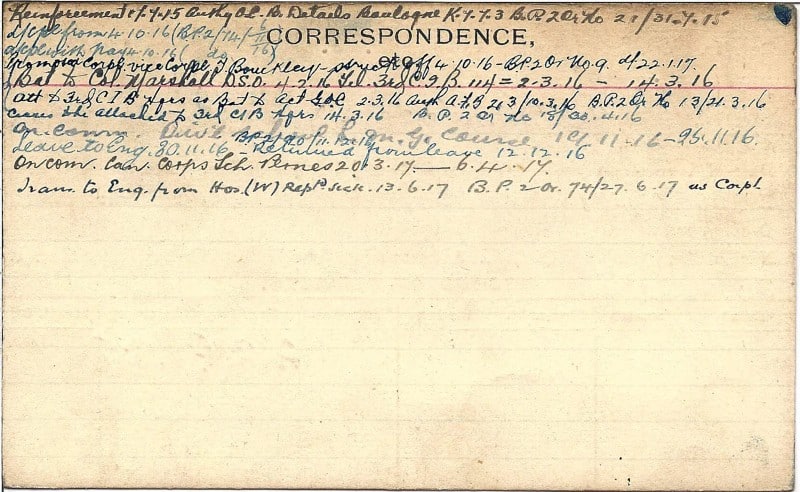 Reinforcement 17.7.15 Authy O.C. B. Details Boulogne K.7.7.3 B.P.2 Or No 21/31.7.15
d/cpl from 4.10.16 (B.P.2/74/
CORRESPONDENCE,
d/cpl with pay 4.10.16 ( do 16)
promoted Corpl vice Corpl Bouckley 4.10.16 - B.P.2 Or No 9. d/22.1.17.
Bat to Col Marshall D.S.O. 4.2.16 3rd C.I.B. 114 = 2.3.16 - 14.3.16
att to 3rd C I B Hqrs as Bat to Act G.O.C 2.3.16 Auth 213/10.3.16 B.P.2 Or No 13/21.3.16
ceases to be attached to 3rd CIB Hqrs 14.3.16 B.P.2 Or No 18/20.4.16
On comm. M. G. Course 19.11.16 - 25.11.16.
Leave to Eng. 30.11.16 - Returned from leave 12.12.16
On com. Can. Corps Sch. Pernes 20.3.17 — 6.4.17.
Trans. to Eng. from Hos. (W) Repd. sick. 13.6.17 B.P. 2 Or. 74/27.6.17 as Corpl